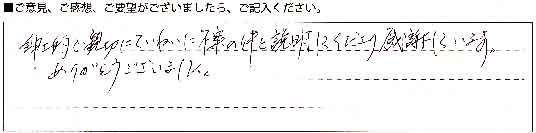 ■ご意見、ご感想、ご要望がございましたら、ご記入ください。
紳士的で親切にていねいに不案の件を説明してくださり感謝しています。
ありがとうございました。